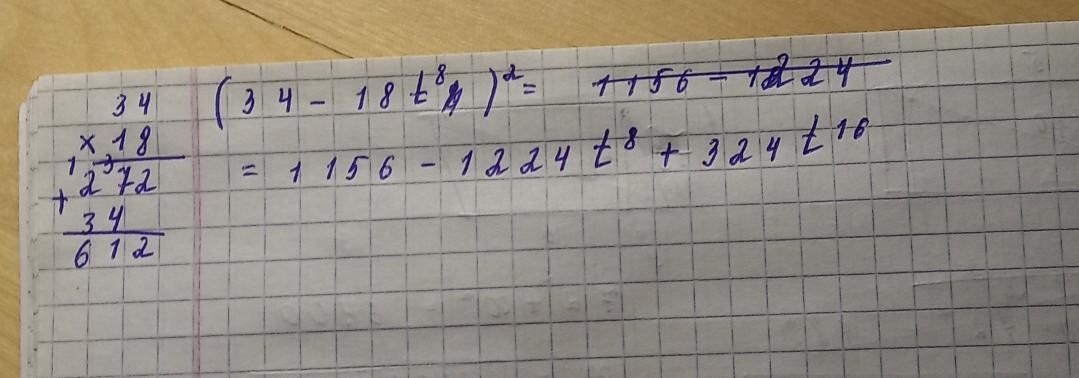 34
× 18
1 3
+ 272
34
612
(34 - 18t⁸)² = ~~1156 - 1224~~
= 1156 - 1224t⁸ + 324t¹⁶